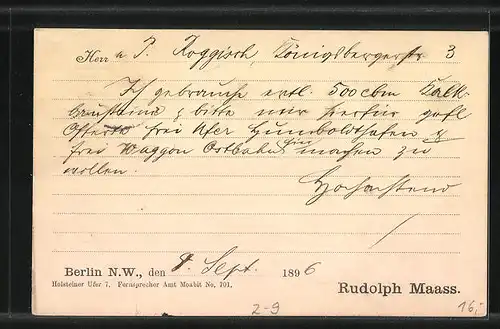 Herr a P. Roggisch, Königsbergerstr. 3
Ich gebrauche evtl. 500 cbm Kalk-
bausteine & bitte mir hierfür gefl
Offerte frei Ufer Humboldthafen &
frei Waggon Ostbahn hier machen zu
wollen.
Hochachtend
Berlin N.W., den 8. Sept. 1896
Holsteiner Ufer 7. Fernsprecher Amt Moabit No. 701.
Rudolph Maass.
2-9
16,-